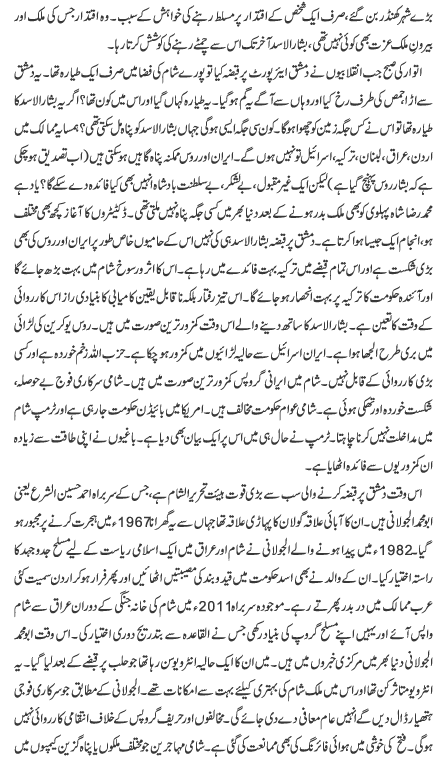 بڑے شہر کھنڈر بن گئے، صرف ایک شخص کے اقتدار پر مسلط رہنے کی خواہش کے سبب۔ وہ اقتدار جس کی ملک اور
بیرون ملک عزت بھی کوئی نہیں تھی، بشارالاسد آخر تک اس سے چمٹے رہنے کی کوشش کرتا رہا۔
اتوار کی صبح جب انقلابیوں نے دمشق ایئرپورٹ پر قبضہ کیا تو پورے شام کی فضا میں صرف ایک طیارہ تھا۔ یہ دمشق
سے اڑا حمص کی طرف رخ کیا اور وہاں سے آگے یہ گم ہو گیا۔ یہ طیارہ کہاں گیا اور اس میں کون تھا؟ اگر یہ بشارالاسد کا
طیارہ تھا تو اس نے کس جگہ زمین کو چھوا ہوگا۔ کون سی جگہ ایسی ہوگی جہاں بشارالاسد کو پناہ مل سکتی تھی؟ ہمسایہ ممالک میں
اردن، عراق، لبنان، ترکیہ، اسرائیل تو نہیں ہوں گے۔ ایران اور روس ممکنہ پناہ گاہیں ہو سکتی ہیں (اب تصدیق ہو چکی
ہے کہ بشار روس پہنچ گیا ہے) لیکن ایک غیر مقبول، بے لشکر، بے سلطنت بادشاہ انہیں بھی کیا فائدہ دے سکے گا؟ یاد ہے
محمد رضا شاہ پہلوی کو بھی ملک بدر ہونے کے بعد دنیا بھر میں کسی جگہ پناہ نہیں ملتی تھی۔ ڈکٹیٹروں کا آغاز کچھ بھی مختلف
ہو، انجام ایک جیسا ہوا کرتا ہے۔ دمشق پر قبضہ بشارالاسد ہی کی نہیں اس کے حامیوں خاص طور پر ایران اور روس کی بھی
بڑی شکست ہے اور اس تمام قضیے میں ترکیہ بہت فائدے میں رہا ہے۔ اس کا اثر و رسوخ شام میں بہت بڑھ جائے گا
اور آئندہ حکومت کا ترکیہ پر بہت انحصار ہو جائے گا۔ اس تیز رفتار بلکہ ناقابل یقین کامیابی کا بنیادی راز اس کارروائی
کے وقت کا تعین ہے۔ بشارالاسد کا ساتھ دینے والے اس وقت کمزور ترین صورت میں ہیں۔ روس یوکرین کی لڑائی
میں بری طرح الجھا ہوا ہے۔ ایران اسرائیل سے حالیہ لڑائیوں میں کمزور ہو چکا ہے۔ حزب اللہ زخم خوردہ ہے اور کسی
بڑی کارروائی کے قابل نہیں۔ شام میں ایرانی گروپس کمزور ترین صورت میں ہیں۔ شامی سرکاری فوج بے حوصلہ،
شکست خوردہ اور تھکی ہوئی ہے۔ شامی عوام حکومت مخالف ہیں۔ امریکا میں بائیڈن حکومت جا رہی ہے اور ٹرمپ شام
میں مداخلت نہیں کرنا چاہتا۔ ٹرمپ نے حال ہی میں اس پر ایک بیان بھی دیا ہے۔ باغیوں نے اپنی طاقت سے زیادہ
ان کمزوریوں سے فائدہ اٹھایا ہے۔
اس وقت دمشق پر قبضہ کرنے والی سب سے بڑی قوت ہیئت تحریر الشام ہے، جس کے سربراہ احمد حسین الشرع یعنی
ابو محمد الجولانی ہیں۔ ان کا آبائی علاقہ گولان کا پہاڑی علاقہ تھا جہاں سے یہ گھرانا 1967ء میں ہجرت کرنے پر مجبور ہو
گیا۔ 1982ء میں پیدا ہونے والے الجولانی نے شام اور عراق میں ایک اسلامی ریاست کے لیے مسلح جدوجہد کا
راستہ اختیار کیا۔ ان کے والد نے بھی اسد حکومت میں قید و بند کی مصیبتیں اٹھائیں اور پھر فرار ہو کر اردن سمیت کئی
عرب ممالک میں در بدر پھرتے رہے۔ موجودہ سربراہ 2011ء میں شام کی خانہ جنگی کے دوران عراق سے شام
واپس آئے اور یہیں اپنے مسلح گروپ کی بنیاد رکھی جس نے القاعدہ سے بتدریج دوری اختیار کی۔ اس وقت ابو محمد
الجولانی دنیا بھر میں مرکزی خبروں میں ہیں۔ میں ان کا ایک حالیہ انٹرویو سن رہا تھا جو حلب پر قبضے کے بعد لیا گیا۔ یہ
انٹرویو متاثر کن تھا اور اس میں ملک شام کی بہتری کیلئے بہت سے امکانات تھے۔ الجولانی کے مطابق جو سرکاری فوجی
ہتھیار ڈال دیں گے انہیں عام معافی دے دی جائے گی۔ مخالفوں اور حریف گروپس کے خلاف انتقامی کارروائی نہیں
ہوگی۔ فتح کی خوشی میں ہوائی فائرنگ کی بھی ممانعت کی گئی ہے۔ شامی مہاجرین جو مختلف ملکوں یا پناہ گزین کیمپوں میں